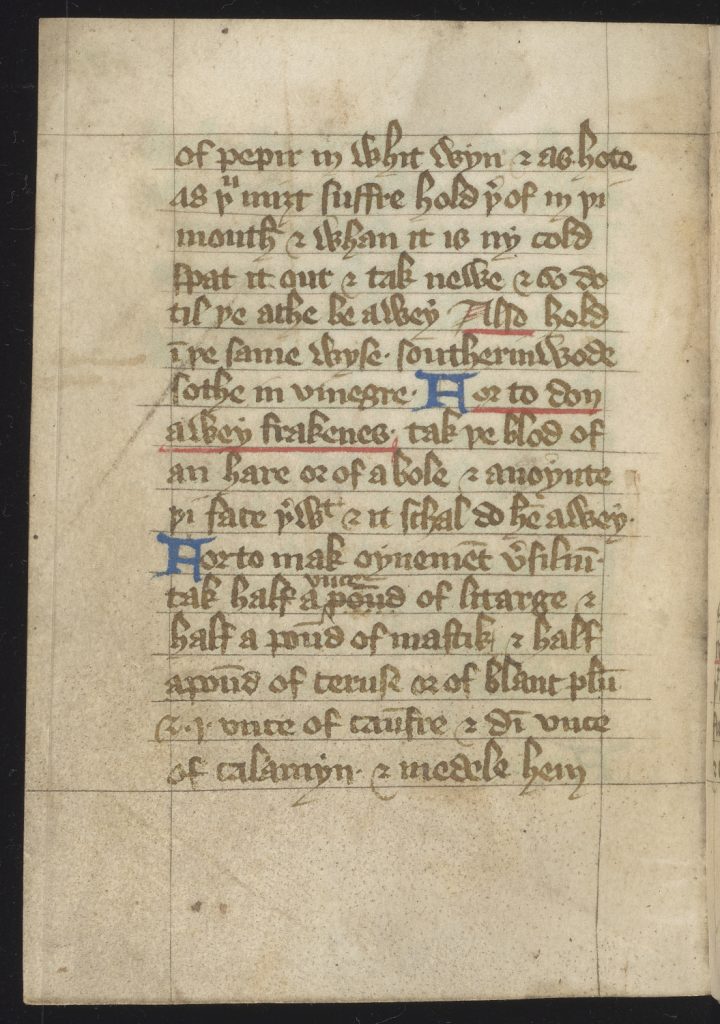 of pepir in whit wyn & as hote
as þu miȝt suffre hold þ'of in þi
mouth & whan it is ny cold
spat it out & tak newe & so do
til þe ache be awey Also hold
ī þe same wyse · southernwode
sothe in vinegre · For to don
awey frakenes · tak þe blod of
an hare or of a bole & anoynte
þi face þ'wt & it schal do hē awey ·
For to mak oynemēt
tak half a vnce poūd of litarge &
half a poūd of mastik & half
a poūd of ceruse or of blanc plū
& · j · vnce of caūfre & di vnce
of calamyn · & medele hem